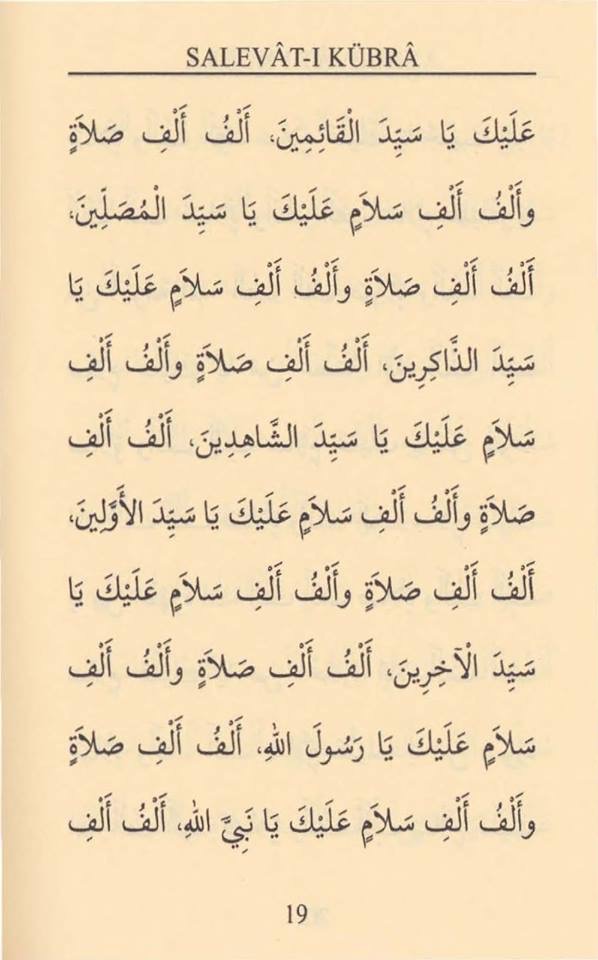 SALEVÂT-I KÜBRÂ
عَلَيْكَ يَا سَيِّدَ الْقَائِمِينَ، أَلْفُ أَلْفِ صَلاَةٍ
وأَلْفُ أَلْفِ سَلاَمٍ عَلَيْكَ يَا سَيِّدَ الْمُصَلِّينَ،
أَلْفُ أَلْفِ صَلاَةٍ وأَلْفُ أَلْفِ سَلاَمٍ عَلَيْكَ يَا
سَيِّدَ الذَّاكِرِينَ، أَلْفُ أَلْفِ صَلاَةٍ وأَلْفُ أَلْفِ
سَلاَمٍ عَلَيْكَ يَا سَيِّدَ الشَّاهِدِينَ، أَلْفُ أَلْفِ
صَلاَةٍ وأَلْفُ أَلْفِ سَلاَمٍ عَلَيْكَ يَا سَيِّدَ الأَوَّلِينَ،
أَلْفُ أَلْفِ صَلاَةٍ وأَلْفُ أَلْفِ سَلاَمٍ عَلَيْكَ يَا
سَيِّدَ الْآخِرِينَ، أَلْفُ أَلْفِ صَلاَةٍ وأَلْفُ أَلْفِ
سَلاَمٍ عَلَيْكَ يَا رَسُولَ اللهِ، أَلْفُ أَلْفِ صَلاَةٍ
وأَلْفُ أَلْفِ سَلاَمٍ عَلَيْكَ يَا نَبِيَّ اللهِ، أَلْفُ أَلْفِ
19